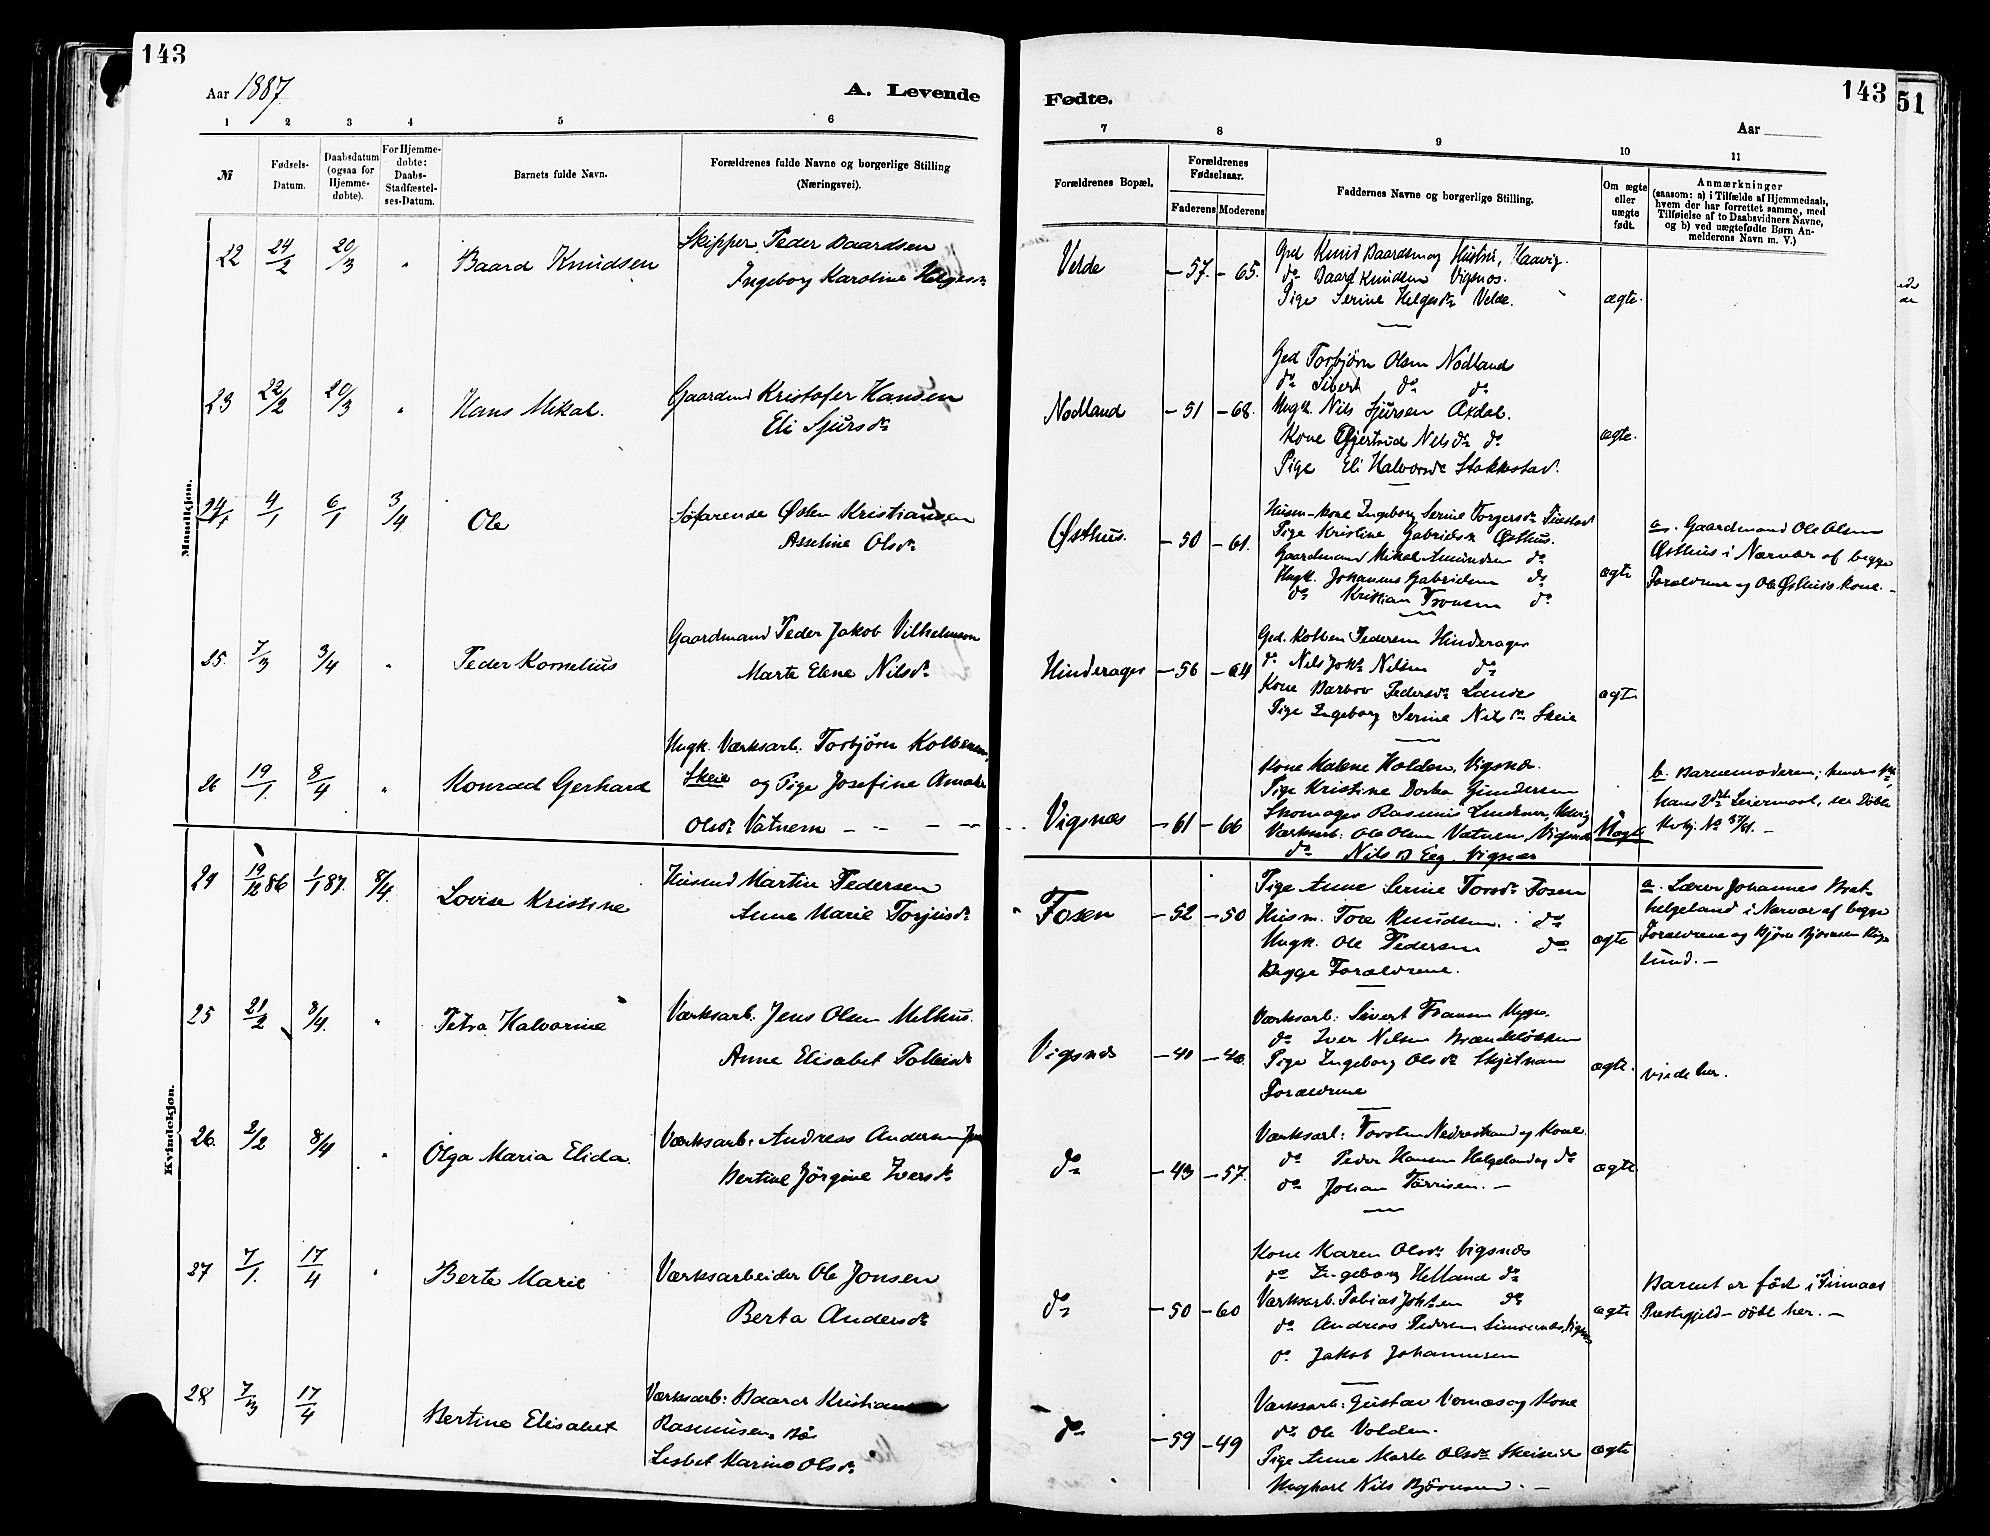 143
Aar 1887
A. Levende
1 2 3 4 5 6
№
Fødsels-
Datum.
Daabsdatum
(ogsaa for
Hjemme-
døbte).
For Hjemme-
døbte:
Daabs-
Stadfæstel-
ses-Datum.
Barnets fulde Navn.
Forældrenes fulde Navne og borgerlige Stilling
(Næringsvei).
Mandkjøn.
22 24/2 20/3 " Baard Knudsen
Skipper Peder Baardsen
Ingeborg Karoline Helgesdr
23 22/2 20/3 " Hans Mikal.
Gaardmd Kristofer Hansen
Eli Sjursdr
24 4/1 6/1 3/4 Ole
Søfarende Osten Kristiansen
Asseline Olsdr
25. 7/3 3/4 " Peder Kornelius
Gaardmand Peder Jakob Vilhelmsen
Marte Elene Nilsdr
26 19/1. 8/4 " Konrad Gerhard
Ungk. Værksarb. Torbjørn Kolbensen
Skeie og Pige Josefine Amalia
Olsdr Vatnem
Kvindekjøn.
24 19/12 86 1/1 87. 8/4. Lovise Kristine
Husmd Martin Pedersen
Anne Marie Torjusdr
25 21/2 3/4. " Petra Halvorine
Værksarb. Jens Olsen Melhus.
Anne Elisabet Tolleisdr
26. 2/2 8/4 " Olga Maria Elida
Værksarb: Andreas Andersen
Bertine Jörgine Iversdr
27 7/1. 17/4 " Berte Marie
Værksarbeider Ole Jonsen
Berta Andersdr
28 7/3 17/4 Bertine Elisabet
Værksarb: Baard Kristian
Rasmussen Bø
Lisbet Karine Olsdr
143
51
Fødte.
Aar
7 8 9 10 11
Forældrenes Bopæl.
Forældrenes
Fødselsaar.
Faderens Moderens
Faddernes Navne og borgerlige Stilling.
Om ægte
eller
uægte
født.
Anmærkninger
(saasom: a) i Tilfælde af Hjemmedaab,
hvem der har forrettet samme, med
Tilføielse af to Daabsvidners Navne,
og b) ved uægtefødte Børn An-
melderens Navn m. V.)
Velde - 57. - 65.
Grd Knud Baardsen og Hustru, Haavig.
do Baard Knudsen Vigsnes.
Pige Serine Helgesdr Velde.
ægte.
Nodland - 51 - 68.
Grd Torbjörn Olsen Nodland
do Sivert do do
Ungk. Nils Sjursen Axdal.
Kone Gjertrud Nelsdr do
Pige Eli Halvorsdr Stakkestad.
ægte.
Østhus. - 50 - 61.
Husm-kone Ingeborg Serine Torgersdr
Pige Kristine Gabrielsdr Østhus.
Gaardmand Mikal Amundsen do
Ungk. Johannes Gabrielsen do
do Kristian Tronsen do
ægte
a. Gaardmand Ole Olsen
Østhus i Nærvær af begge
Forældrene og Ole Østhus's kone. -
Hinderager - 56 - 64
Grd. Kolben Pedersen Hinderager
do Nils Johs Nilsen do
Kone Barbro Pedersdr Landes
Pige Ingeborg Serine Nilsdr Skeie
ægte
Vigsnes - 61 - 66
Kone Malene Holden, Vigsnes.
Pige Kristine Dorka Gundersen
Skomager Rasmus
Værksarb: Ole Olsen Vatnem, Vigsnes
do Nils B Eeg. Vigsnes
Uægte
b. Barnemoderen; hendes 1ste,
hans 2det Leiermaal, see Døbte
Kvkj. No
Fosen - 52 - 50
Pige Anne Serine Toresdr Fosen
Husm. Tore Knudsen. do
Ungk. Ole Pedersen do
Begge Forældrene.
ægte
a. Lærer Johannes Bret-
helgeland i Nærvær af begge
Forældrene og Bjørn Bjørnsen
lund. -
Vigsnes - 40 - 40
Værksarb: Sivert Fransen Myge.
do Iver Nilsen Brændeløkken
Pige Ingeborg Olsdr Skjetnam
Forældrene
ægte.
viede her.
do - 43 - 57.
Værksarb: Torsten Nedrestrand og Kone
do Peder Hansen Helgeland og do
do Johan Tørrisen. -
ægte
do - 50 - 60
Kone Karen Olsdr Vigsnes
do Ingeborg Helland do
Værksarb. Tobias Johssen do
do Andreas Pedersen
do Jakob Johannesen
ægte
Barnet er født i Finnaas
Prestegjeld - døbt her. -
do - 59 - 49
Værksarb: Gustav Vernes og Kone
do Ole Volden.
Pige Anne Marta Olsdr
Ungkarl Nils Bjørnsen. -
ægte